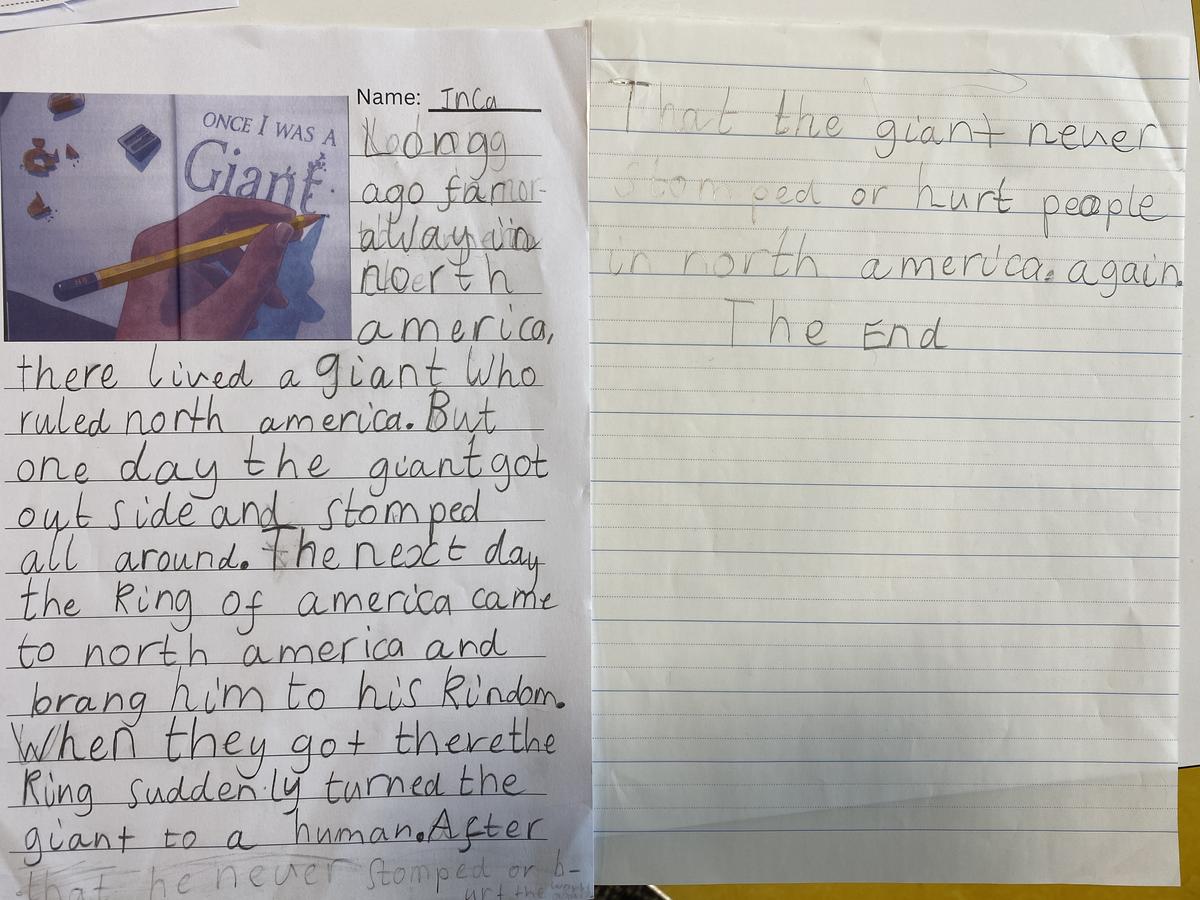 ONCE I WAS A
Giant.
Name: Inca
Loongg
ago far
away in
north
america,
there lived a giant Who
ruled north america. But
one day the giant got
out side and stomped
all around. The next day
the King of america came
to north america and
brang him to his Kindom.
When they got there the
King suddenly turned the
giant to a human. After
that he never stomped or h-
urt the
That the giant never
stomped or hurt people
in north america. again.
The End